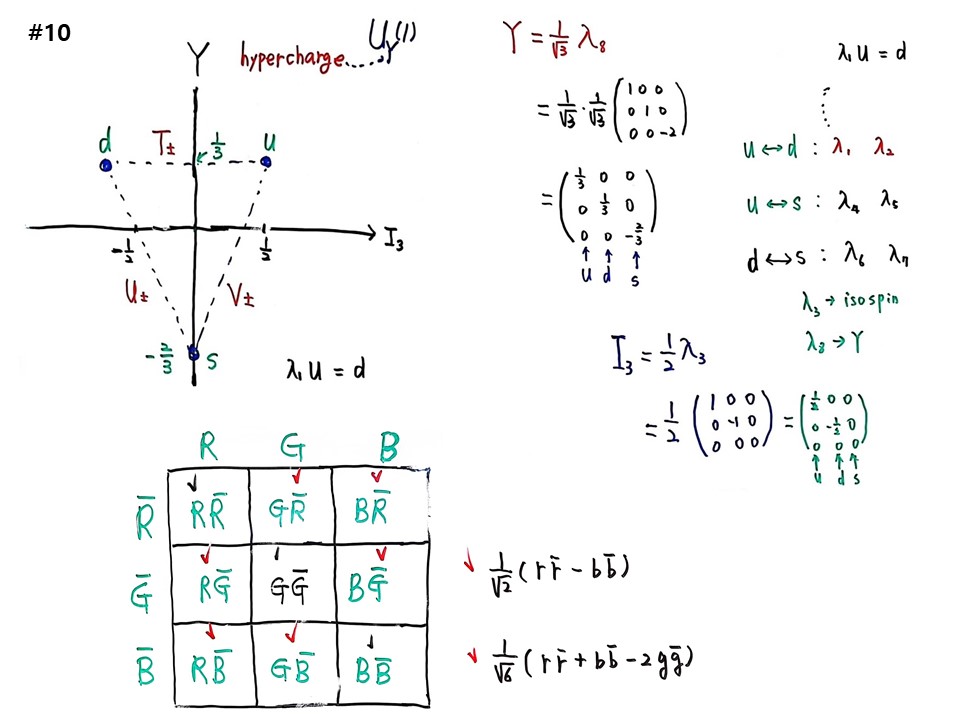 #10
Y hypercharge.....U_Y(1)
d T± 1/3 u
-1/2 1/2 I₃
U± V±
-2/3 s
λ₁ u = d
Y = 1/√3 λ₈
= 1/√3 · 1/√3 (1 0 0
0 1 0
0 0 -2)
= (1/3 0 0
0 1/3 0
0 0 -2/3)
↑ ↑ ↑
u d s
λ₁ u = d
u ↔ d : λ₁ λ₂
u ↔ s : λ₄ λ₅
d ↔ s : λ₆ λ₇
λ₃ → isospin
λ₈ → Y
I₃ = 1/2 λ₃
= 1/2 (1 0 0
0 -1 0
0 0 0) = (1/2 0 0
0 -1/2 0
0 0 0)
↑ ↑ ↑
u d s
R G B
R̅ RR̅ GR̅ BR̅
G̅ RG̅ GG̅ BG̅
B̅ RB̅ GB̅ BB̅
✓ 1/√2 (rr̅ - bb̅)
✓ 1/√6 (rr̅ + bb̅ - 2gg̅)